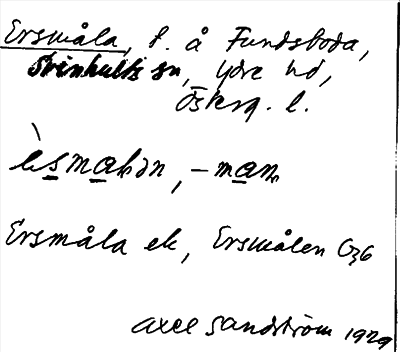 Ersmåla, t. å Fundsboda,
Svinhults sn, Ydre hd,
Österg. l.
Ersmåla ek, Ersmålen G36
Axel Sandström 1929